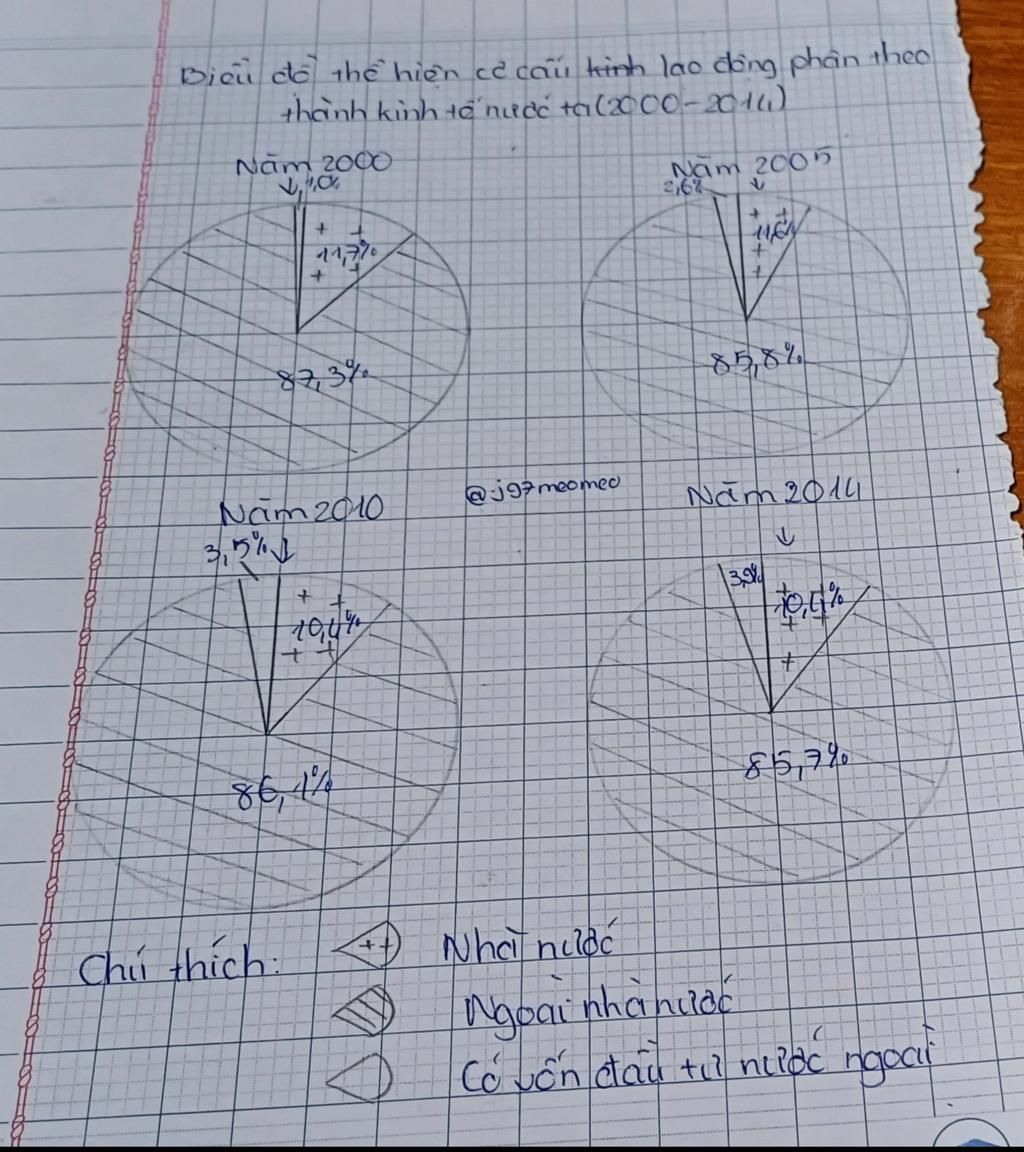 Biểu đồ thể hiện cơ cấu kinh lao động phân theo
thành kinh tế nước ta (2000-2014)
Năm 2000
Năm 2005
1,0%
2,6%
11,7%
11,6%
87,3%
85,8%
@j97meomeo
Năm 2010
Năm 2014
3,5%
3,9%
10,4%
10,4%
86,1%
85,7%
Chú thích:
Nhà nước
Ngoài nhà nước
Có vốn đầu tư nước ngoài